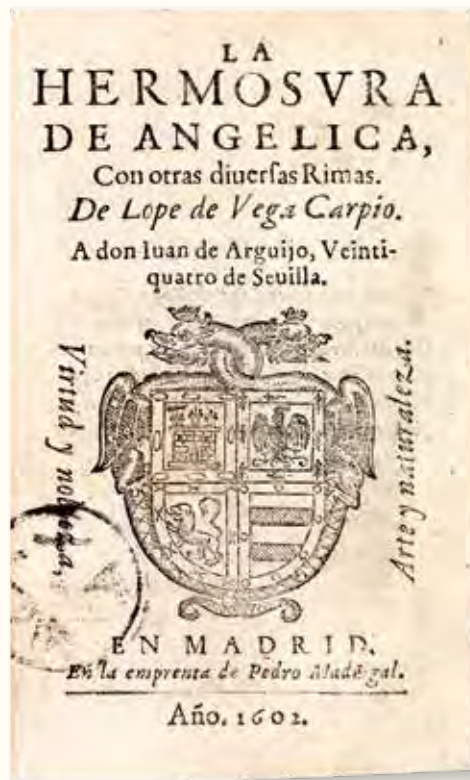 LA
HERMOSVRA
DE ANGELICA,
Con otras diuerſas Rimas.
De Lope de Vega Carpio.
A don Iuan de Arguijo, Veinti-
quatro de Seuilla.
Virtud y nobleza,
Arte y naturaleza.
EN MADRID.
En la emprenta de Pedro Madrigal.
Año. 1602.